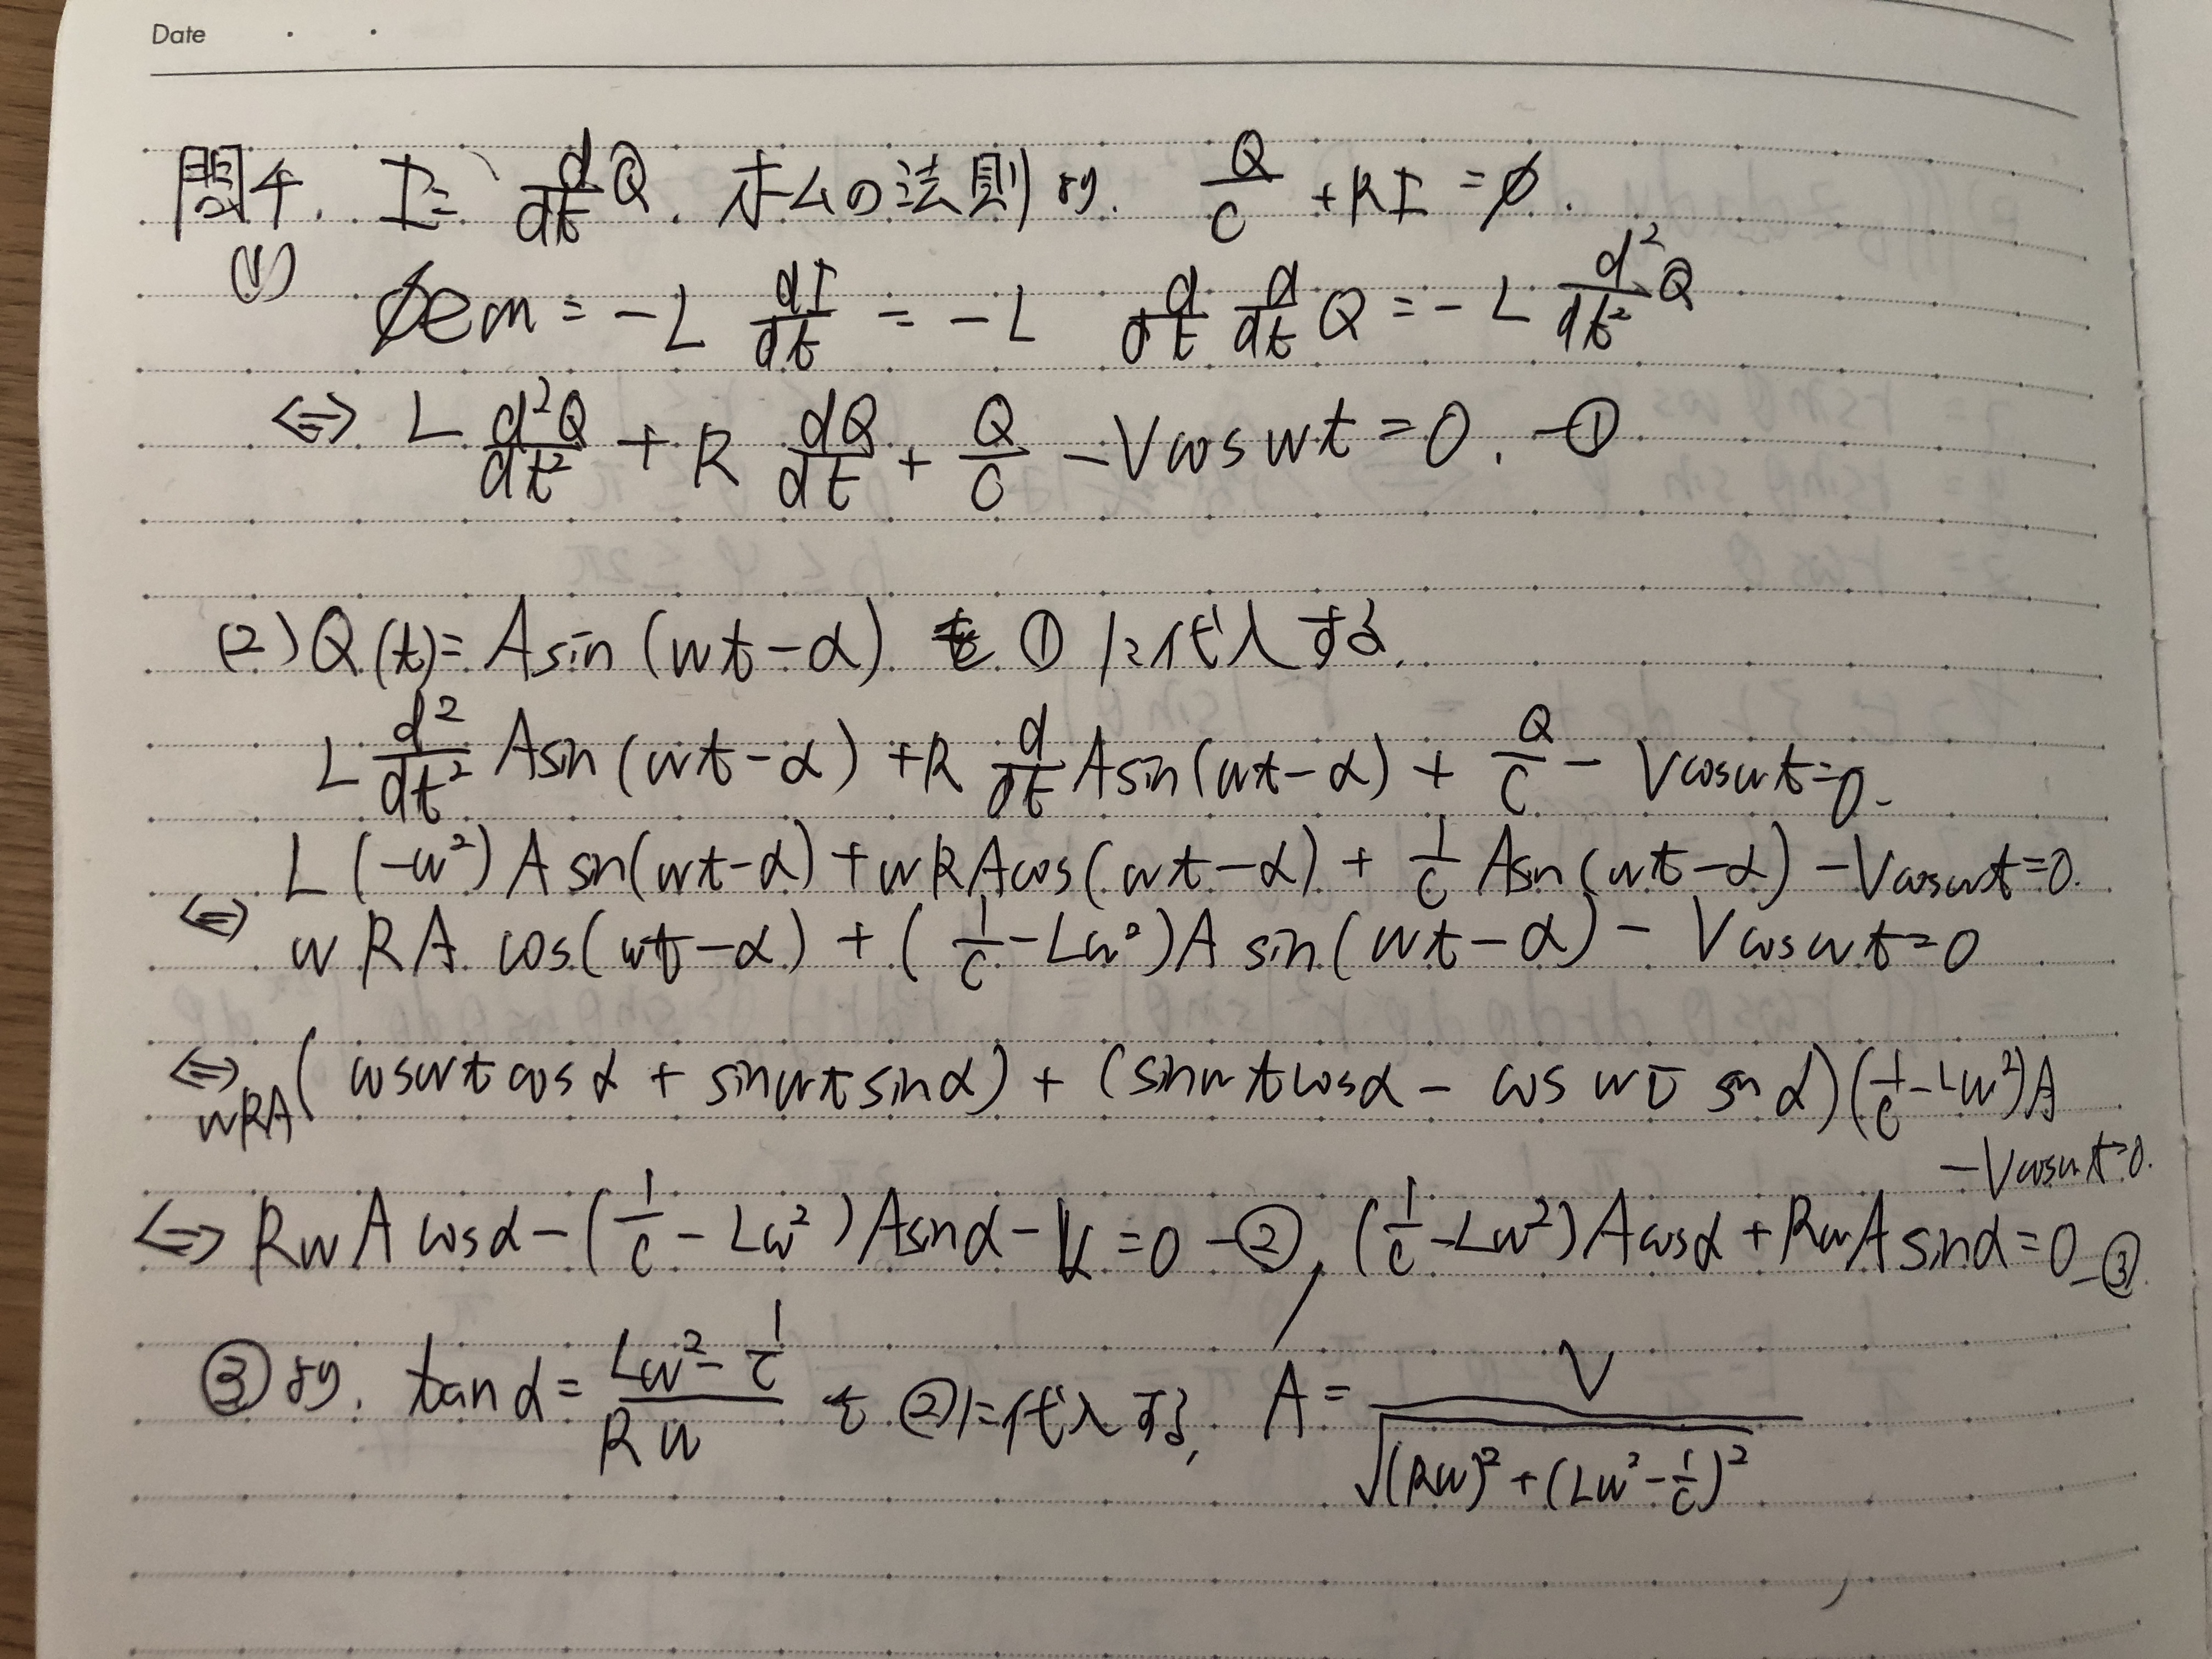 Date
問4. I = d/dt Q. オームの法則より. Q/C + RI = φ.
(1)
φem = -L dI/dt = -L d/dt d/dt Q = -L d²/dt² Q
⇔ L d²Q/dt² + R dQ/dt + Q/C - Vcosωt = 0. -①
(2) Q(t) = Asin(ωt-α) を ① に代入する.
L d²/dt² Asin(ωt-α) + R d/dt Asin(ωt-α) + Q/C - Vcosωt = 0.
L(-ω²)Asin(ωt-α) + ωRAcos(ωt-α) + 1/C Asin(ωt-α) - Vcosωt = 0.
⇔ ωRA cos(ωt-α) + (1/C - Lω²)A sin(ωt-α) - Vcosωt = 0
⇔ ωRA(cosωt cosα + sinωt sinα) + (sinωt cosα - cosωt sinα)(1/C - Lω²)A
- Vcosωt = 0.
⇔ RωA cosα - (1/C - Lω²)Asinα - V = 0 -②, (1/C - Lω²)Acosα + RωA sinα = 0 -③
③より. tanα = (Lω² - 1/C)/Rω を ②に代入する, A = V/√((Rω)² + (Lω² - 1/C)²)